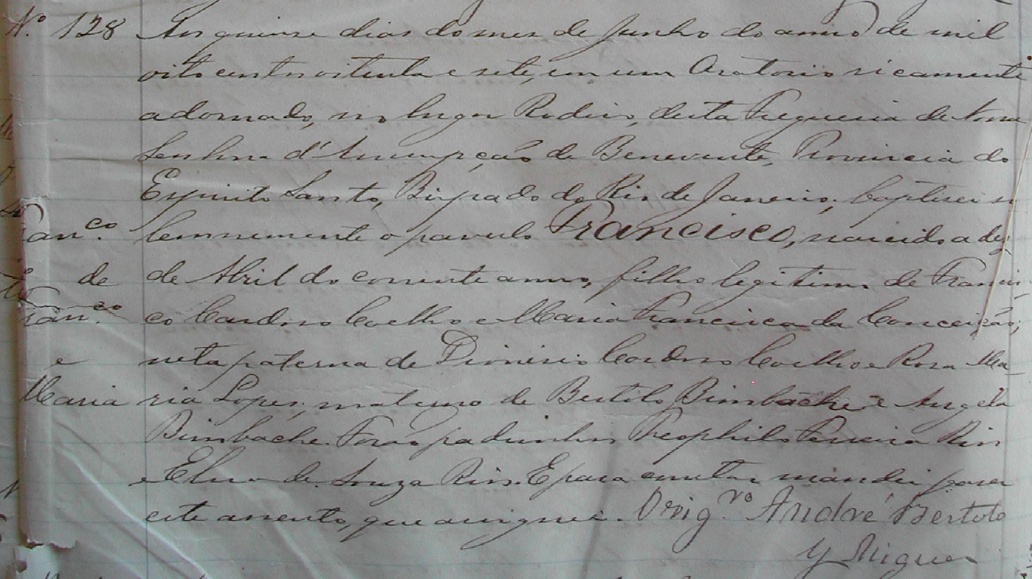 Nº 128 Aos quinse dias do mes de Junho do anno de mil
oito centos oitenta e sete, em um Oratorio ricamente
adornado, no lugar Rodeio, desta Freguesia de Nossa
Senhora d'Assumpção de Benevente, Provincia do
Espirito Santo, Bispado do Rio de Janeiro, baptisei so
Fran.co lemnemente o parvulo Francisco, nascido a dez
de de Abril do corrente anno, filho legitimo de Francis
Fran.co co Cardoso Coelho e Maria Francisca da Conceição;
e neto paterno de Dionisio Cardoso Coelho e Rosa Ma
Maria ria Lopes, materno de Bertolo Bimbache e Angela
Bimbache. Forão padrinhos Theophilo Ferreira Rios
e de Souza Rios. E para constar mandei fazer
este assento, que assignei. O Vig.ro André Bertolo
y Miguer